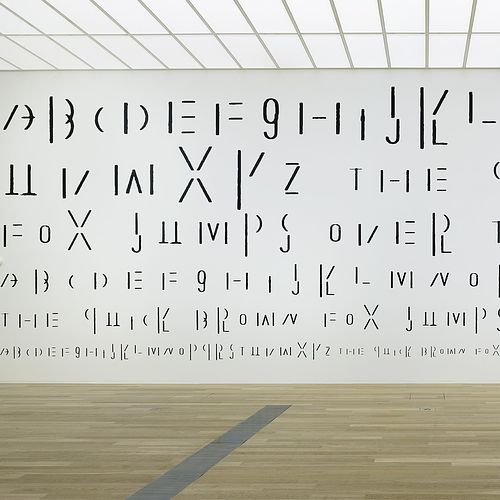 ABCDEFGHIJKL
UVWXYZ THE
FOX JUMPS OVER
ABCDEFGHIJKLMNO
THE QUICK BROWN FOX JUMPS
ABCDEFGHIJKLMNOPQRSTUVWXYZ THE QUICK BROWN FOX